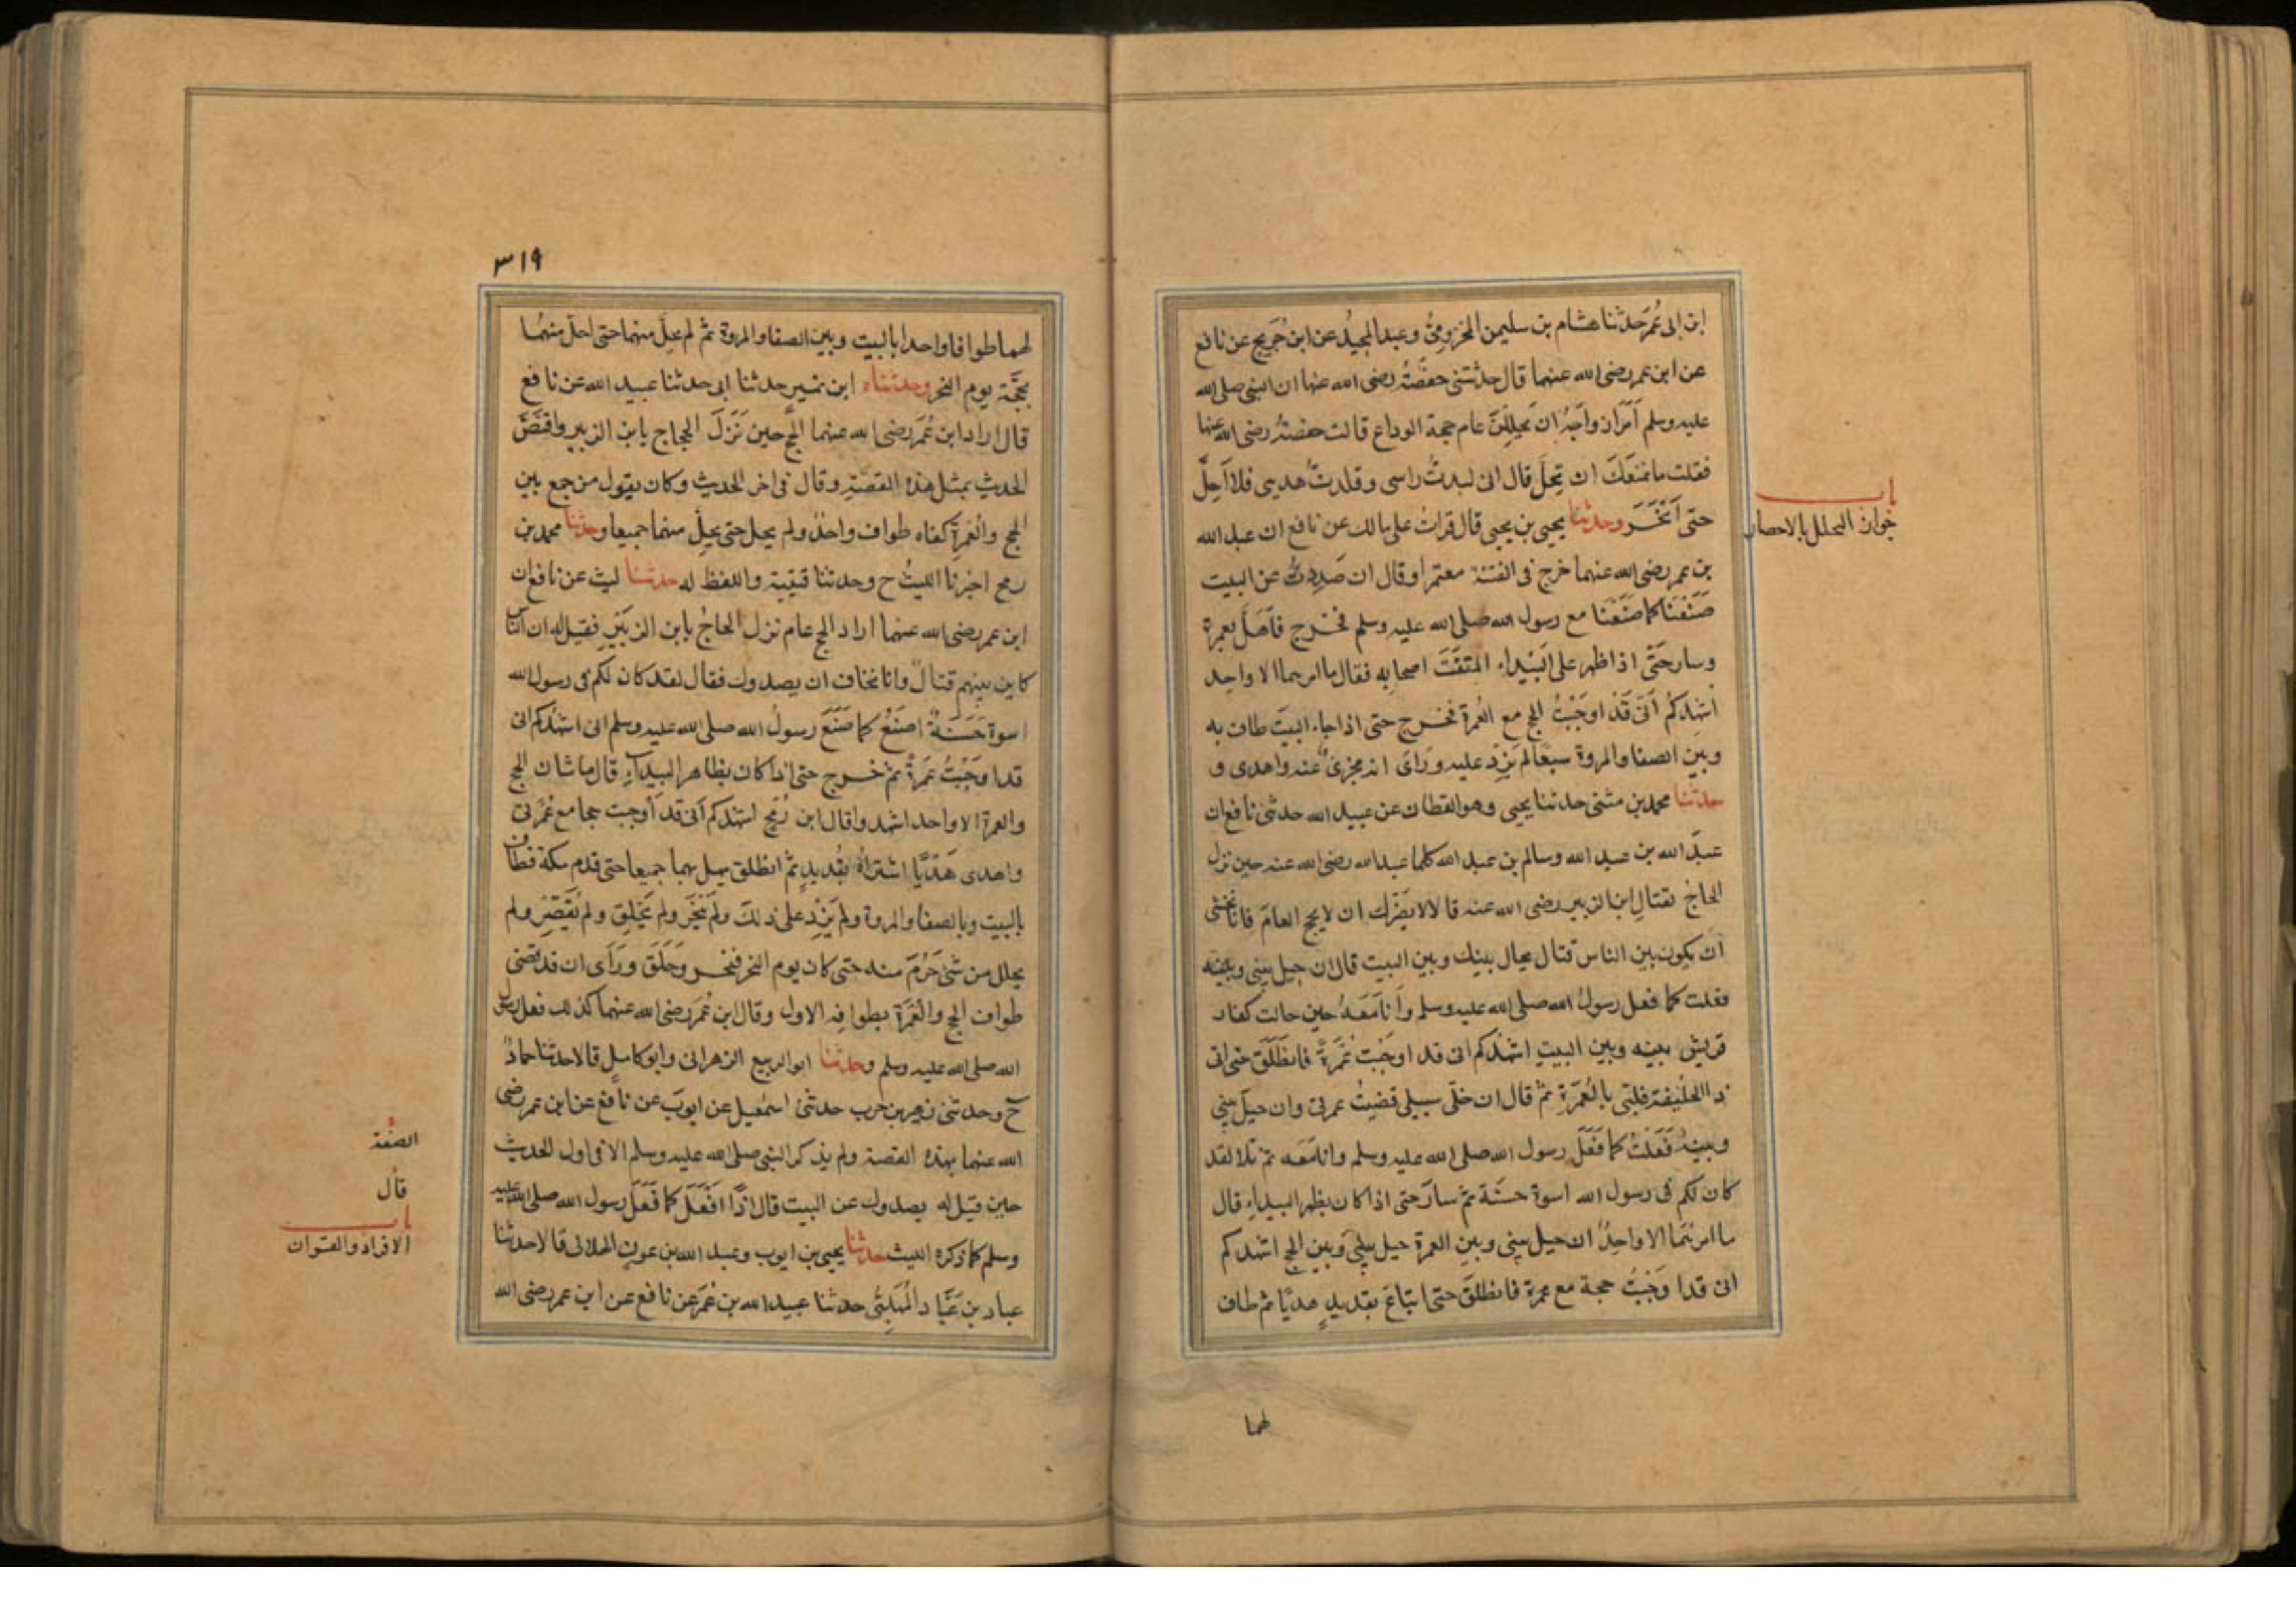 ابن ابى عُمَرَ حدثنا هشام بن سليمن المخزومىُّ وعبد المجيدُ عن ابن جُرَيجٍ عن نافع
عن ابن عمر رضى الله عنهما قال حدثتنى حفصَةُ رضى الله عنها ان النبى صلى الله
عليه وسلم اَمَرَ ازواجَهُ ان يَحلِلنَ عام حجة الوداع قالت حفصةُ رضى الله عنها
فقلت ما منعَكَ ان تحِلَّ قال انى لبدتُ راسى وقلدتُ هديى فلا اَحِلُّ
حتى اَنحَرَ وحدثنا يحيى بن يحيى قال قراتُ على مالك عن نافع ان عبد الله
باب
جواز التحلل بالاحصار
بن عمر رضى الله عنهما خرج فى الفتنة معتمرا وقال ان صُدِدتُ عن البيت
صَنَعْنَا كما صَنَعْنَا مع رسول الله صلى الله عليه وسلم فخرج فَاَهَلَّ بعمرة
وسار حَتَّى اذا ظهر على البَيْداءِ التفَتَ الى اصحابه فقال ما امرهما الا واحد
اشهدكُم اَنّى قَد اوجَبْتُ الحج مع العُمرة فخرج حتى اذا جاء البيتَ طاف به
وبين الصفا والمروة سبعًا لم يَزِد عليه ورَاَى انه مجزئٌ عنه واهدى و
حدثنا محمد بن مثنى حدثنا يحيى وهو القطان عن عبيد الله حدثنى نافع ان
عبدَ الله بن عبد الله وسالم بن عبد الله كلما عبد الله رضى الله عنه حين نزل
الحاجُ لقتالِ ابن الزبير رضى الله عنه قالا لا يضُرّك ان لا يحج العامَ فانا نخشى
ان يكون بين الناس قتال يحال بينك وبين البيت قال ان حيل بينى وبينه
فعلت كما فعل رسولُ الله صلى الله عليه وسلم وانا مَعَهُ حين حالت كفار
قريش بينه وبين البيت اشهدكم انى قد اوجَبْتُ عُمْرَةً فانطَلَقَ حتى اتى
ذا الحُليفة فلبَّى بالعُمرَةِ ثم قال ان خلّى سبيلى قضيتُ عمرتى وان حيلَ بينى
وبينهُ فَعَلتُ كما فَعَلَ رسول الله صلى الله عليه وسلم وانا مَعَه ثم تلا لقد
كان لكم فى رسول الله اسوة حسنَة ثم سارَ حتى اذا كان بظهر البيداءِ قال
ما امرهُما الا واحِدٌ ان حيل بينى وبين العمرة حيل بينى وبين الحج اشهدكم
انى قد اوجَبتُ حجة مع عمرة فانطلَقَ حتى ابتاعَ بقديدٍ هديًا ثم طاف
لهما
٣١٩
لهما طوافا واحدا بالبيت وبين الصفا والمروة ثمَّ لم يحِلَّ منهما حتى احلّ منهُما
بحجّة يوم النحر وحدثناه ابن نمير حدثنا ابى حدثنا عبيد الله عن نافع
قال اراد ابن عُمَر رضى الله عنهما الحجَّ حين نَزَلَ الحجاج بابن الزبير واقتَصَّ
الحديث بمثل هذه القصَّةِ وقال فى اخر الحديث وكان يقول من جمع بين
الحج والعُمرَة كفاه طواف واحدٌ ولم يحل حتى يحِلَّ منهما جميعا وحدثنا محمد بن
رمح اخبرنا الليثُ ح وحدثنا قتيبة واللفظ له حدثنا ليث عن نافع ان
ابن عمر رضى الله عنهما اراد الحج عام نزل الحاجُ بابن الزبَيْرِ فقيل له ان الناس
كاين بينهم قتالٌ وانا نخاف ان يصدوك فقال لقد كان لكم فى رسول الله
اسوة حَسَنَةٌ اصنَعُ كما صَنَعَ رسولُ الله صلى الله عليه وسلم انى اشهدكم انى
قد اوجَبْتُ عُمرَةً ثم خرج حتى اذا كان بظاهر البيداءِ قال ما شان الحج
والعمرة الا واحد اشهدوا قال ابن رُمحٍ اشهدكم اَنى قد اوجبت حجا مع عُمرَتى
واهدى هَدْيًا اشتراهُ بقُديدٍ ثمَّ انطلق يهل بهما جميعا حتى قدم مكة فطاف
بالبيت وبالصفا والمروة ولم يَزِد على ذلك ولم يَنحَر ولم يَحلِق ولم يُقَصِّر ولم
يحلل من شئ حَرُمَ منه حتى كان يوم النحر فنحر وحَلَقَ ورَاَى ان قد قضى
طواف الحج والعُمَرَة بطوافِه الاول وقال ابن عُمَر رضى الله عنهما كذلك فعل رسول
الله صلى الله عليه وسلم وحدثنا ابو الربيع الزهرانى وابو كامل قالا حدثنا حمادٌ
ح وحدثنى زهير بن حرب حدثنى اسمعيل عن ايوب عن نافع عن ابن عمر رضى
الله عنهما بهذه القصة ولم يذكر النبى صلى الله عليه وسلم الا فى اول الحديث
القصة
حين قيل له يصدوك عن البيت قال اذًا افعَلَ كما فَعَلَ رسول الله صلى الله عليه
قال
وسلم كما ذكره الليث حدثنا يحيى بن ايوب وعبد الله بن عون الهلالى قالا حدثنا
باب
الافراد والقران
عباد بن عَبَّاد المُهَلَّبِىُّ حدثنا عبيد الله بن عُمَرَ عن نافع عن ابن عمر رضى الله